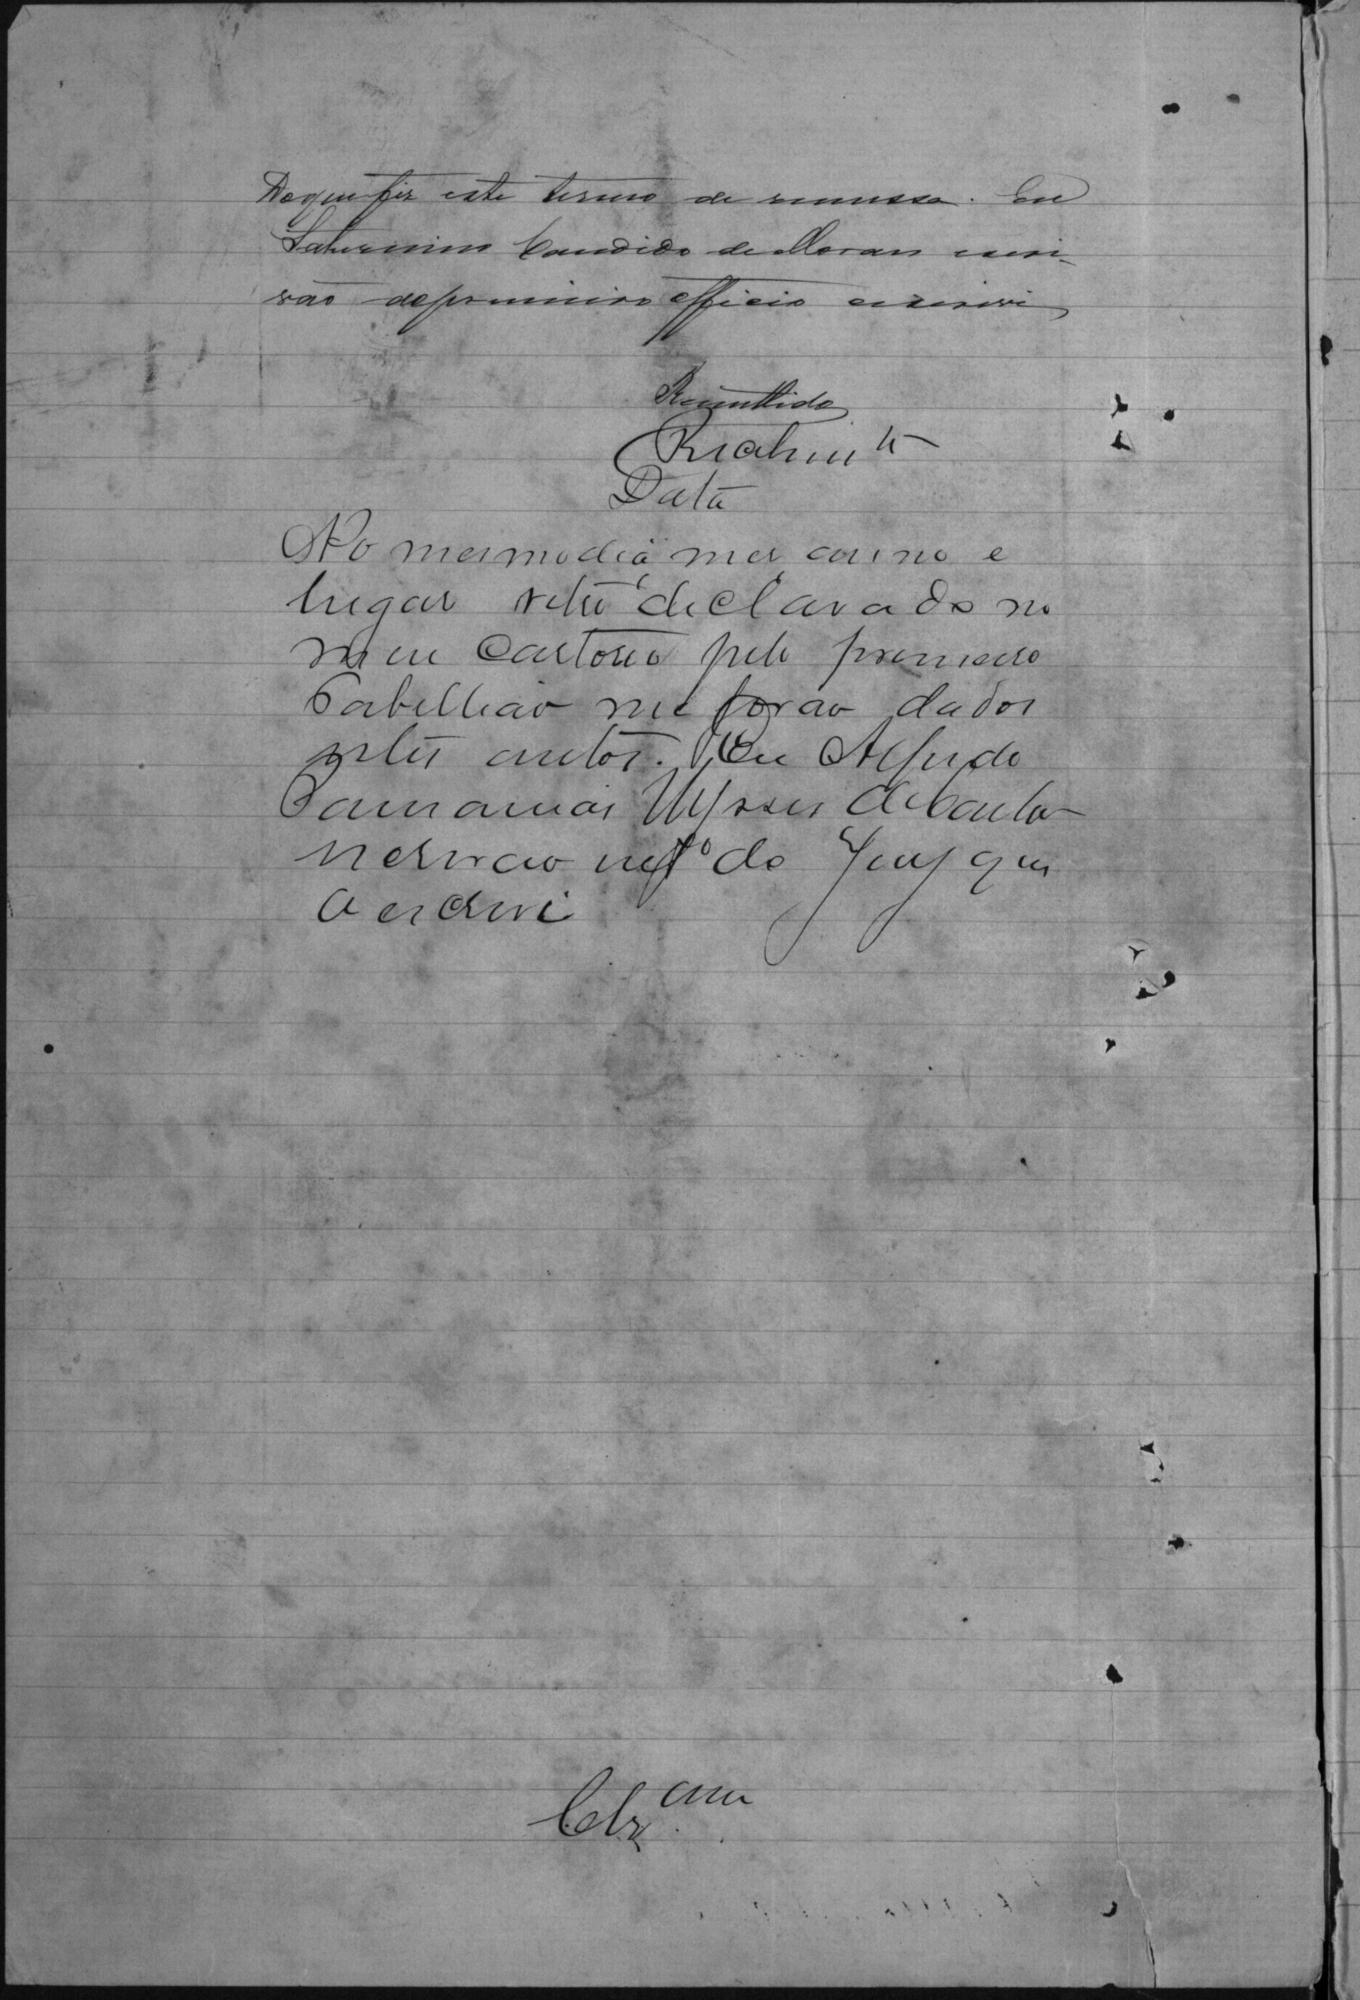 Do que fiz este termo de remessa. Eu
Saturnino Candido de Moraes escri-
vão do primeiro officio escrevi
Remettido
Data
No mesmo dia mez anno e
lugar retro declarado no
meu Cartorio pelo primeiro
Tabellião me forão dados
estes autos. Eu Alfredo
Ulysses de
escrivão do Jury que
o escrevi
Clz